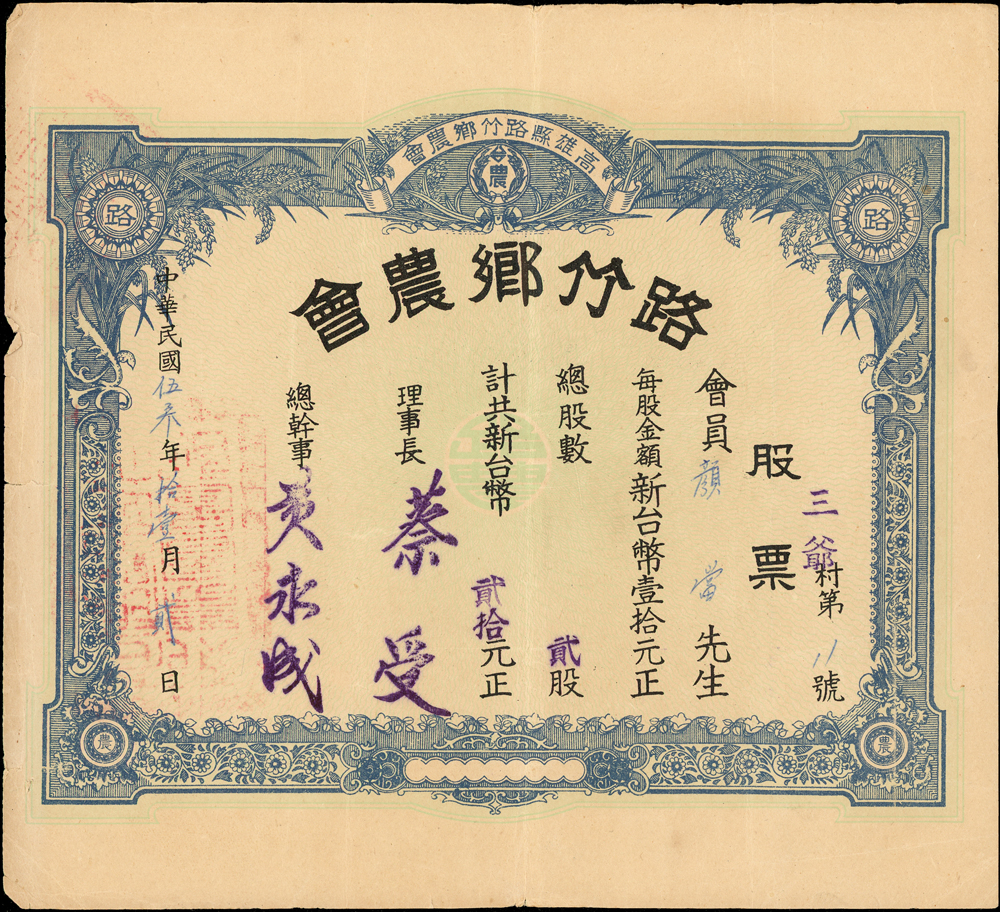 高雄縣路竹鄉農會
農
路
路
路竹鄉農會
三爺村第11號
股票
會員顏當先生
每股金額新台幣壹拾元正
總股數貳股
計共新台幣貳拾元正
理事長蔡受
總幹事黃永成
中華民國伍叁年拾壹月貳日
農
農